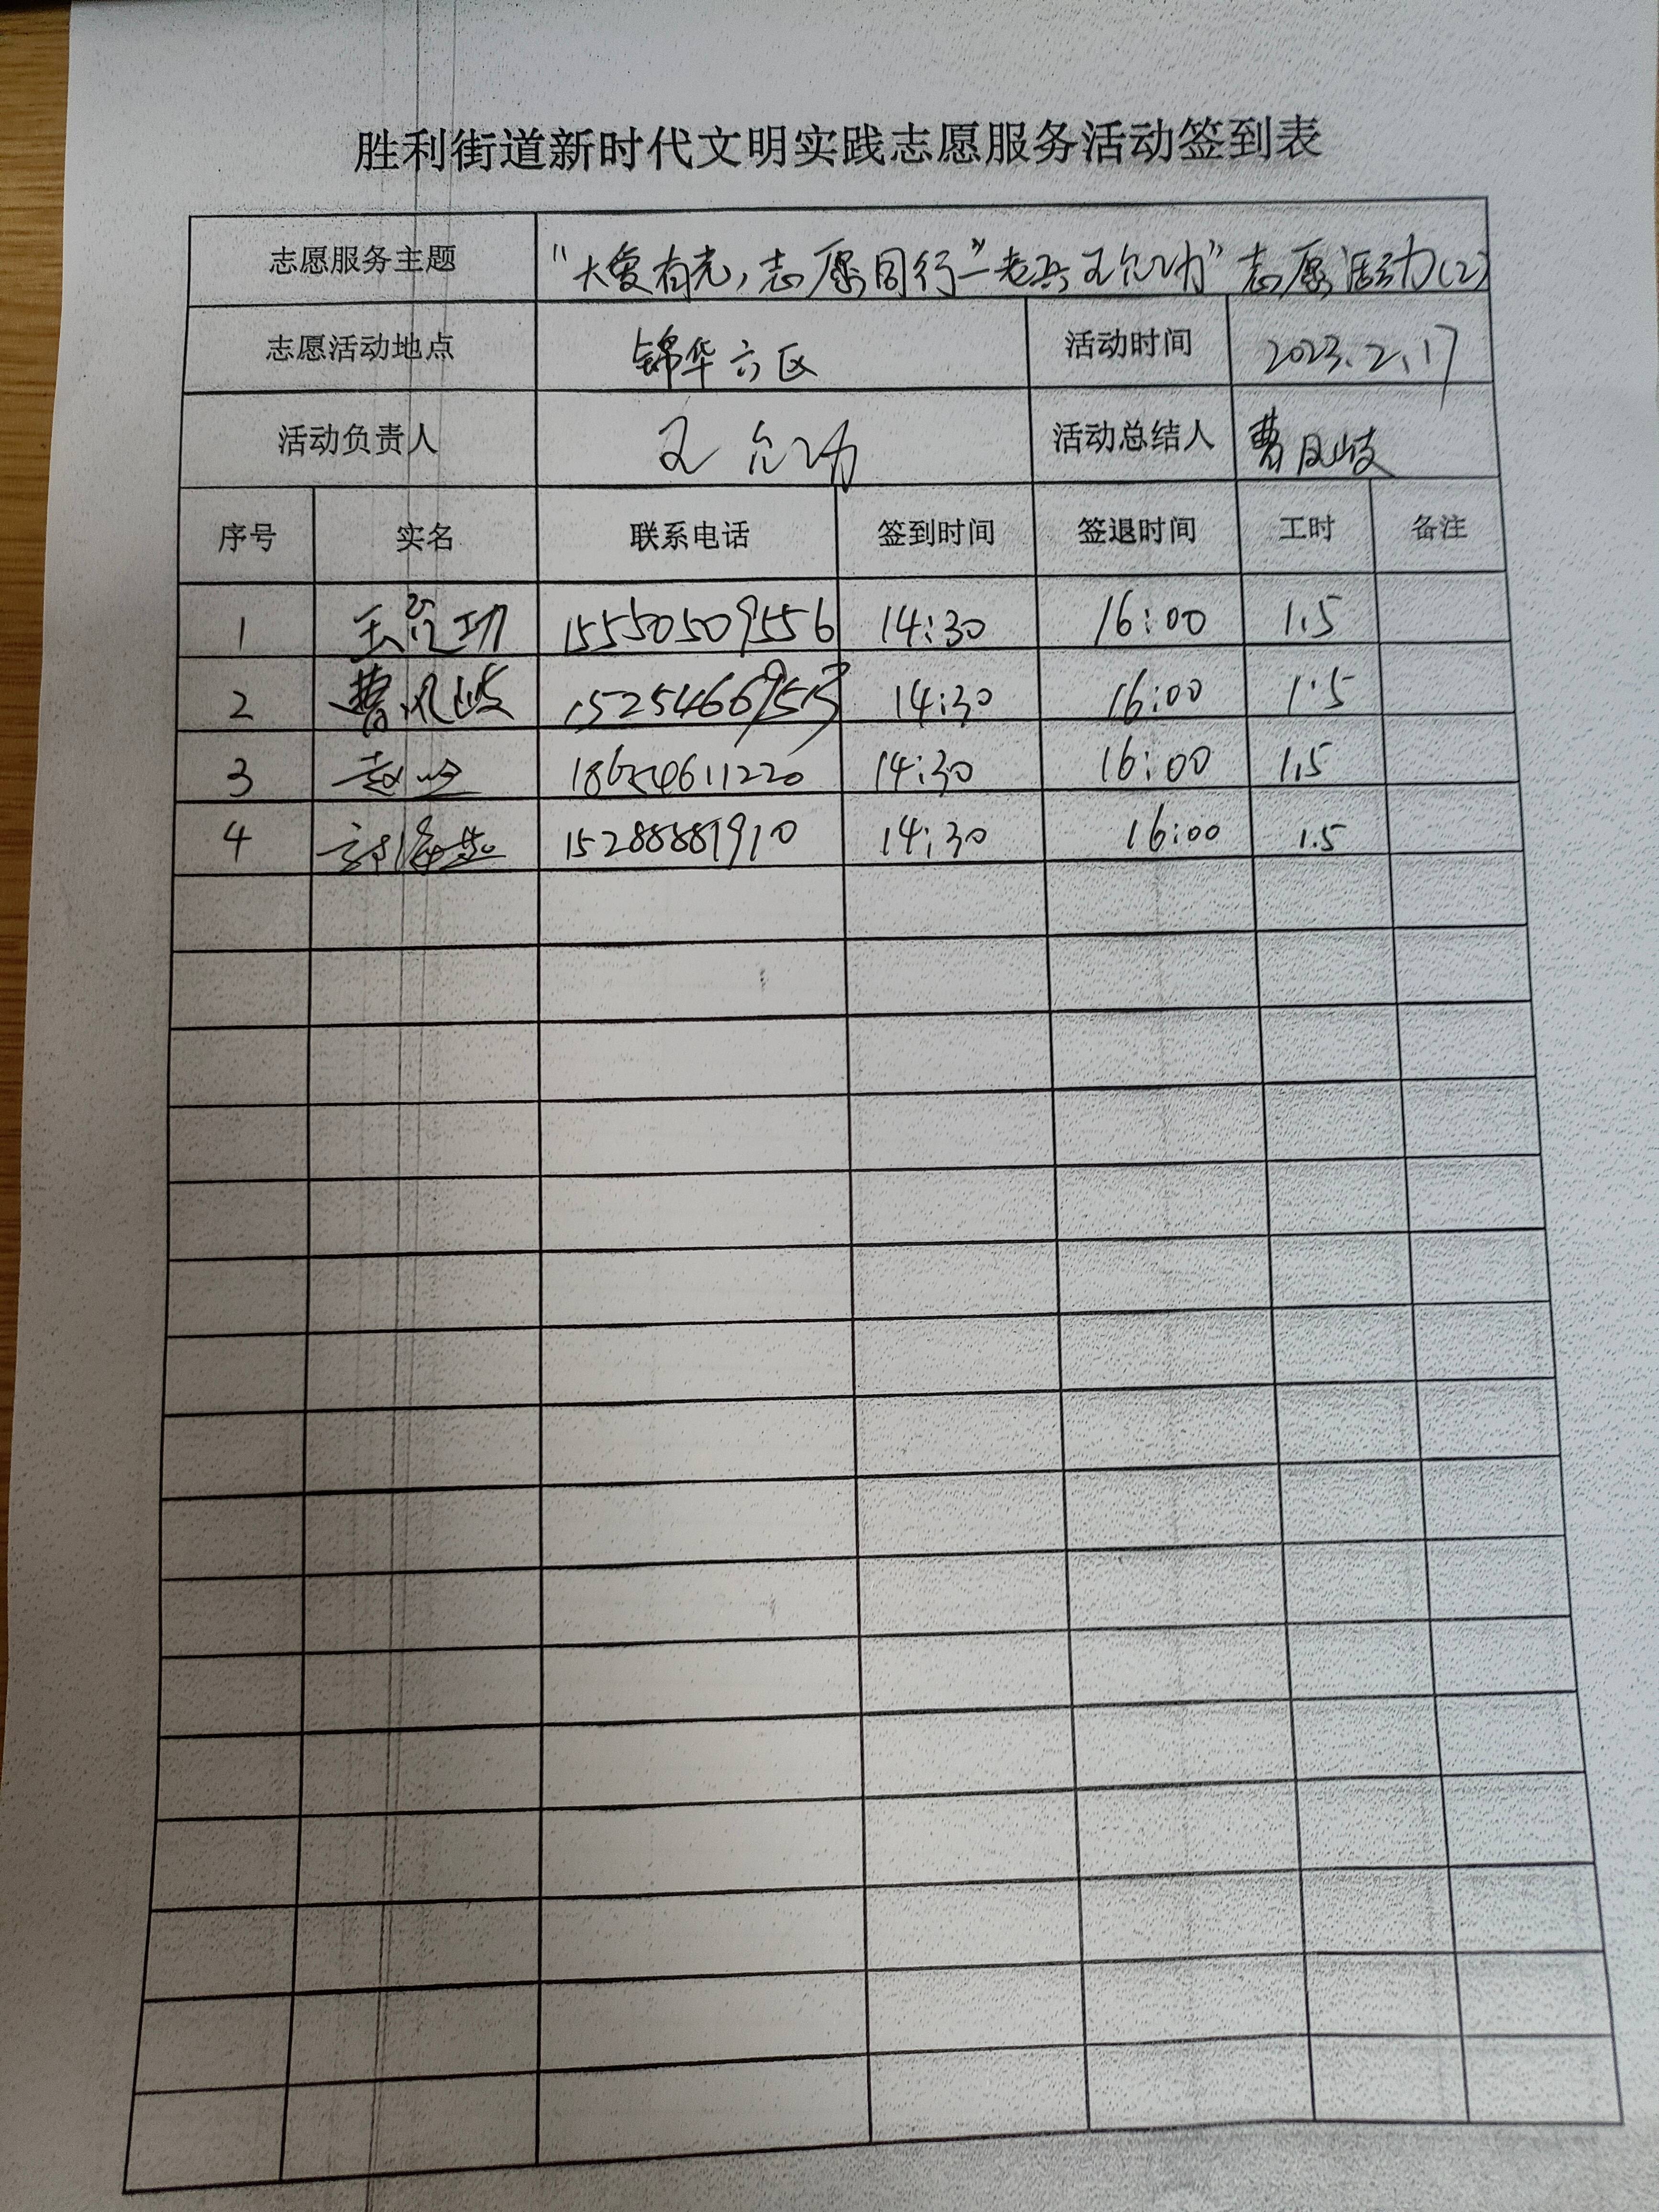 胜利街道新时代文明实践志愿服务活动签到表
志愿服务主题 "大爱有光,志愿同行"—老兵王允功"志愿活动(2)
志愿活动地点 锦华六区 活动时间 2023.2.17
活动负责人 王允功 活动总结人 曹凤岐
序号 实名 联系电话 签到时间 签退时间 工时 备注
1 王允功 15550509556 14:30 16:00 1.5
2 曹凤岐 14:30 16:00 1.5
3 赵 18654611220 14:30 16:00 1.5
4 15288881910 14:30 16:00 1.5